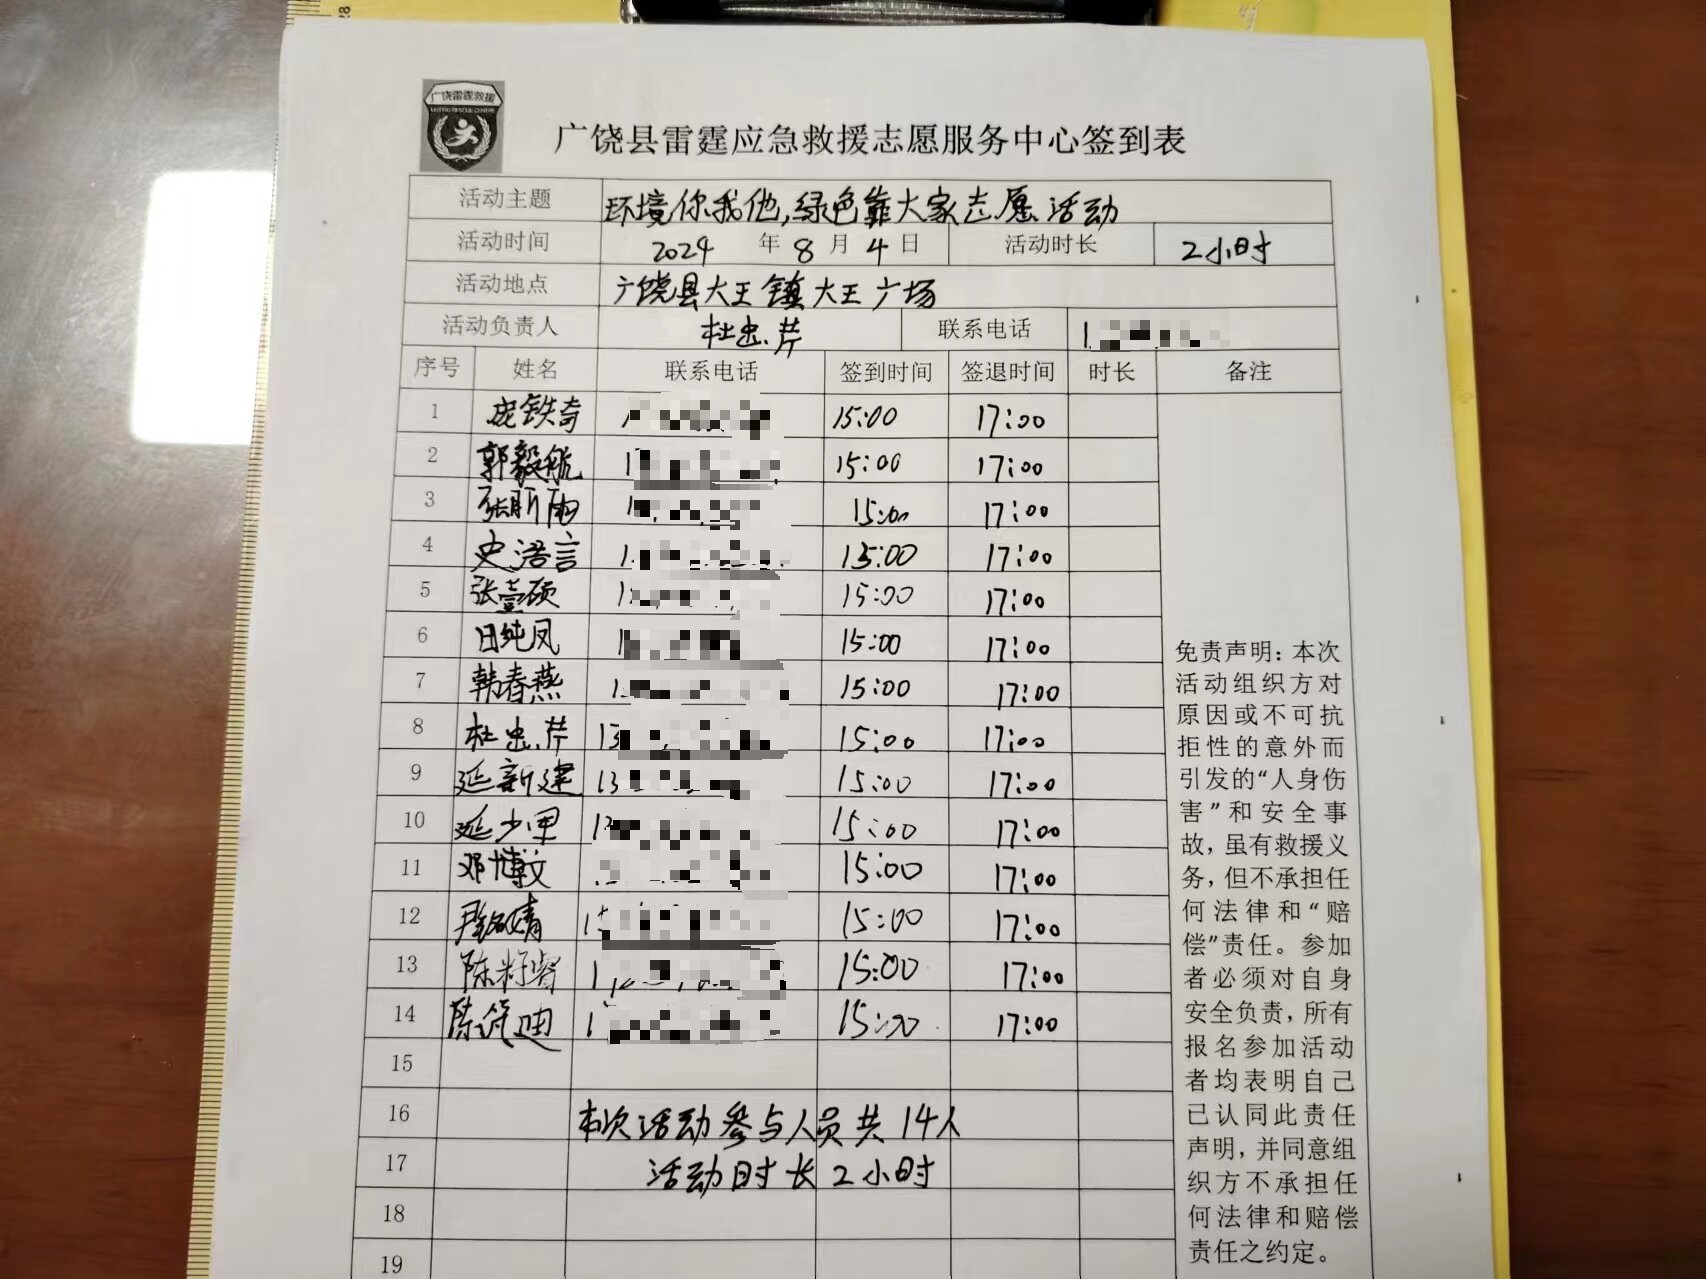 广饶雷霆救援
广饶县雷霆应急救援志愿服务中心签到表
活动主题 环境你我他,绿色靠大家志愿活动
活动时间 2024 年 8 月 4 日 活动时长 2小时
活动地点 广饶县大王镇大王广场
活动负责人 杜忠芹 联系电话 1
序号 姓名 联系电话 签到时间 签退时间 时长 备注
1 庞铁奇 1 15:00 17:00
2 郭毅航 1 15:00 17:00
3 张昕雨 1 15:00 17:00
4 史语言 1 15:00 17:00
5 张壹硕 1 15:00 17:00
6 田纯凤 1 15:00 17:00
7 韩春燕 1 15:00 17:00
8 杜忠芹 13 15:00 17:00
9 延新建 13 15:00 17:00
10 延少甲 1 15:00 17:00
11 邓博文 15:00 17:00
12 1 15:00 17:00
13 陈籽睿 1 15:00 17:00
14 1 15:00 17:00
15
16 本次活动参与人员共14人
17 活动时长2小时
18
19
免责声明:本次
活动组织方对
原因或不可抗
拒性的意外而
引发的“人身伤
害”和安全事
故,虽有救援义
务,但不承担任
何法律和“赔
偿”责任。参加
者必须对自身
安全负责,所有
报名参加活动
者均表明自己
已认同此责任
声明,并同意组
织方不承担任
何法律和赔偿
责任之约定。